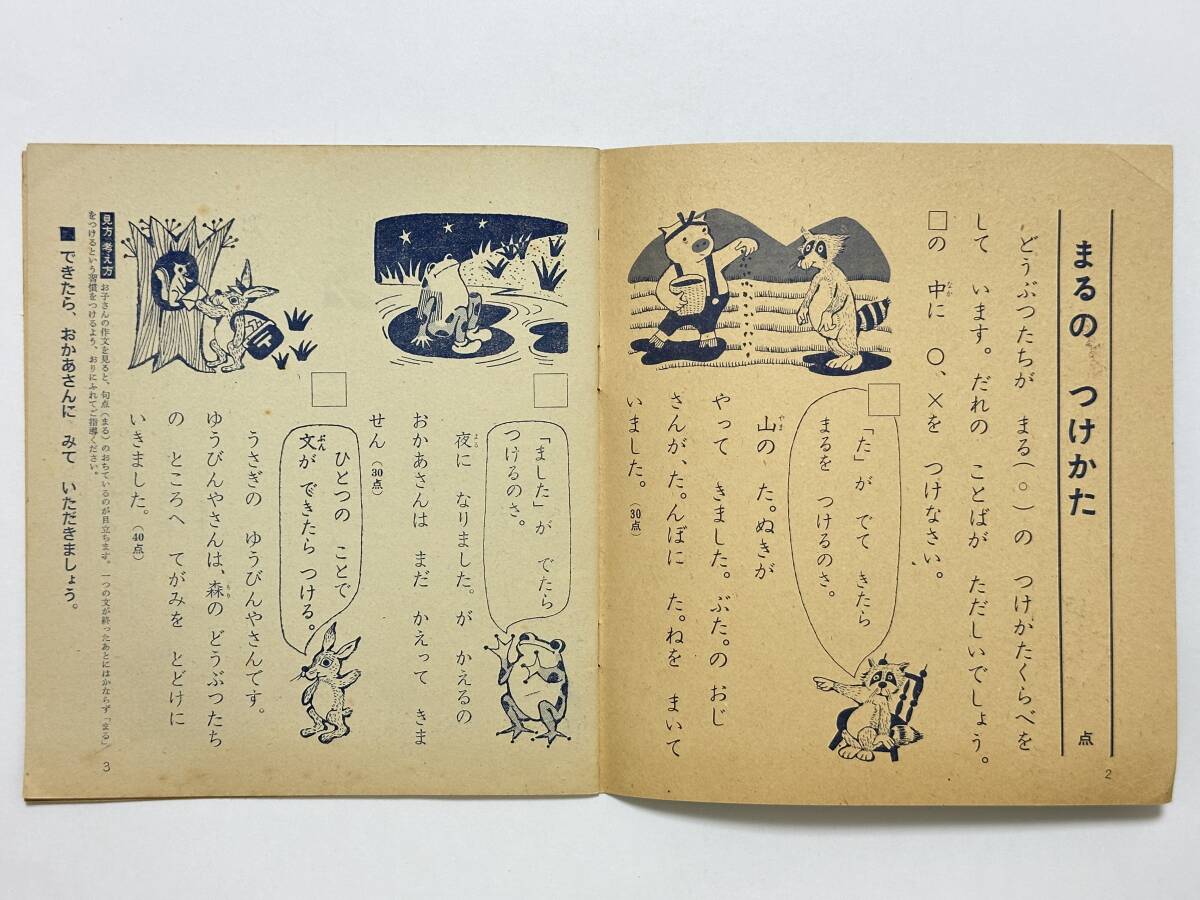 まるの つけかた
点
どうぶつたちが まる(。)の つけかたくらべを
して います。だれの ことばが ただしいでしょう。
□の 中に ○、×を つけなさい。
なか
「た」が でて きたら
まるを つけるのさ。
山の た。ぬきが
やま
やって きました。ぶた。の おじ
さんが、た。んぼに た。ねを まいて
いました。(30点)
2
「ました」が でたら
つけるのさ。
夜に なりました。が かえるの
よる
おかあさんは まだ かえって きま
せん(30点)
ひとつの ことで
文が できたら つける。
ぶん
うさぎの ゆうびんやさんです。
ゆうびんやさんは、森の どうぶつたち
もり
の ところへ てがみを とどけに
いきました。(40点)
見方・考え方 お子さんの作文を見ると、句点(まる)のおちているのが目立ちます。一つの文が終ったあとにはかならず「まる」
をつけるという習慣をつけるよう、おりにふれてご指導ください。
■できたら、おかあさんに みて いただきましょう。
3